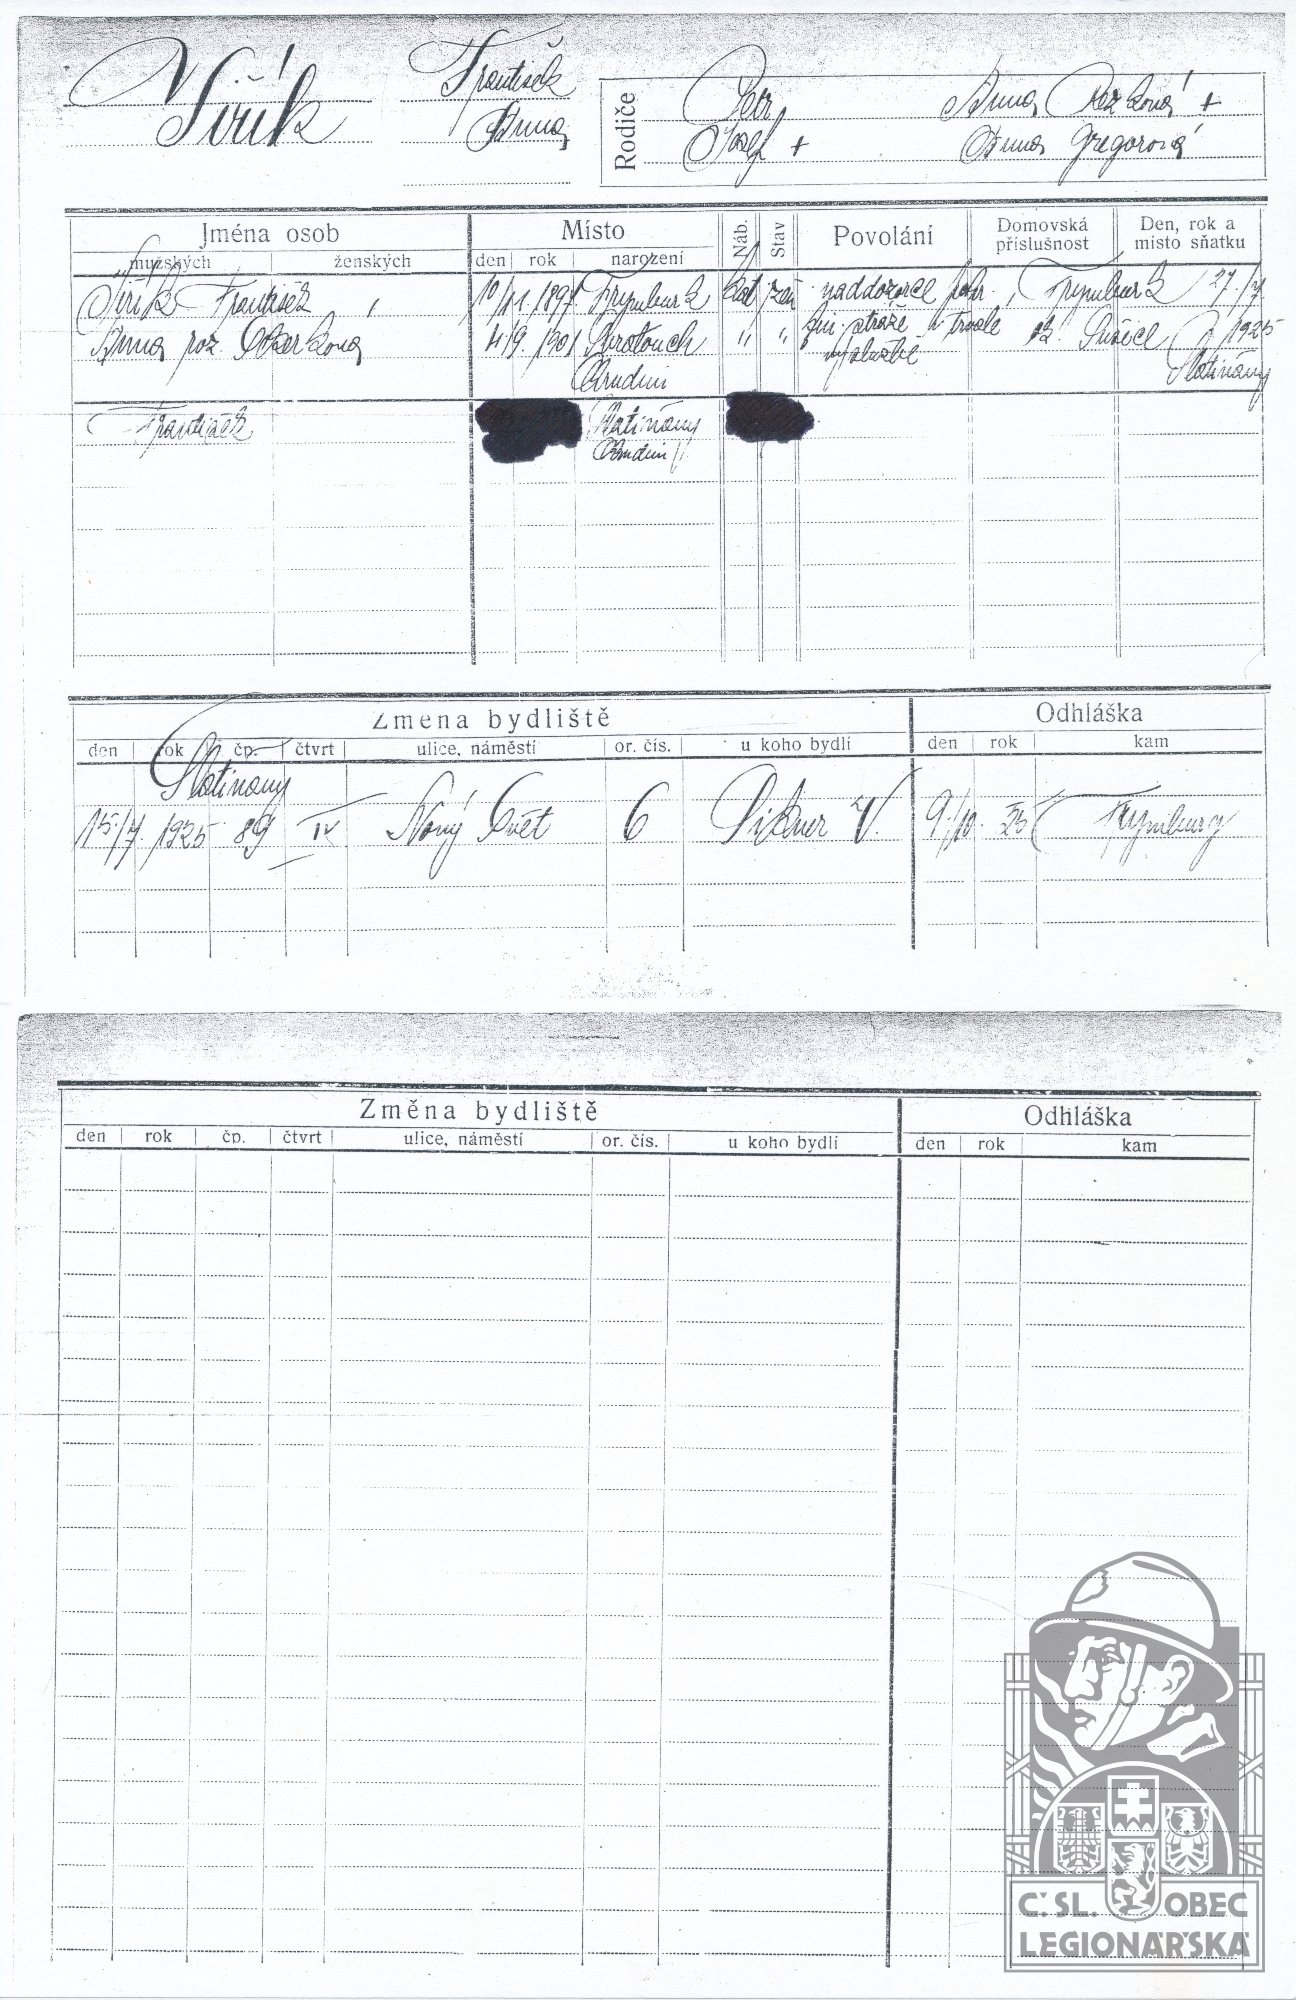 František
Anna
Rodiče
Petr
Josef +
Anna +
Anna Gregorová
Jména osob
mužských
ženských
Místo
den
rok
narození
Náb.
Stav
Povolání
Domovská
příslušnost
Den, rok a
místo sňatku
František
10/11. 1897
Frymburk
kat
žen
naddozorce
Frymburk
27/7
Anna roz.
4/9. 1901
Svratouch
"
"
fin. stráže v
ok. Sušice
1925
Chrudim
výslužbě
Slatiňany
František
Slatiňany
Chrudim
Změna bydliště
Odhláška
den
rok
čp.
čtvrt
ulice, náměstí
or. čís.
u koho bydlí
den
rok
kam
Slatiňany
15./7. 1925
89
IV
Nový Svět
6
V.
9./10. 25
Změna bydliště
Odhláška
den
rok
čp.
čtvrt
ulice, náměstí
or. čís.
u koho bydlí
den
rok
kam
Č. SL. OBEC
LEGIONÁŘSKÁ